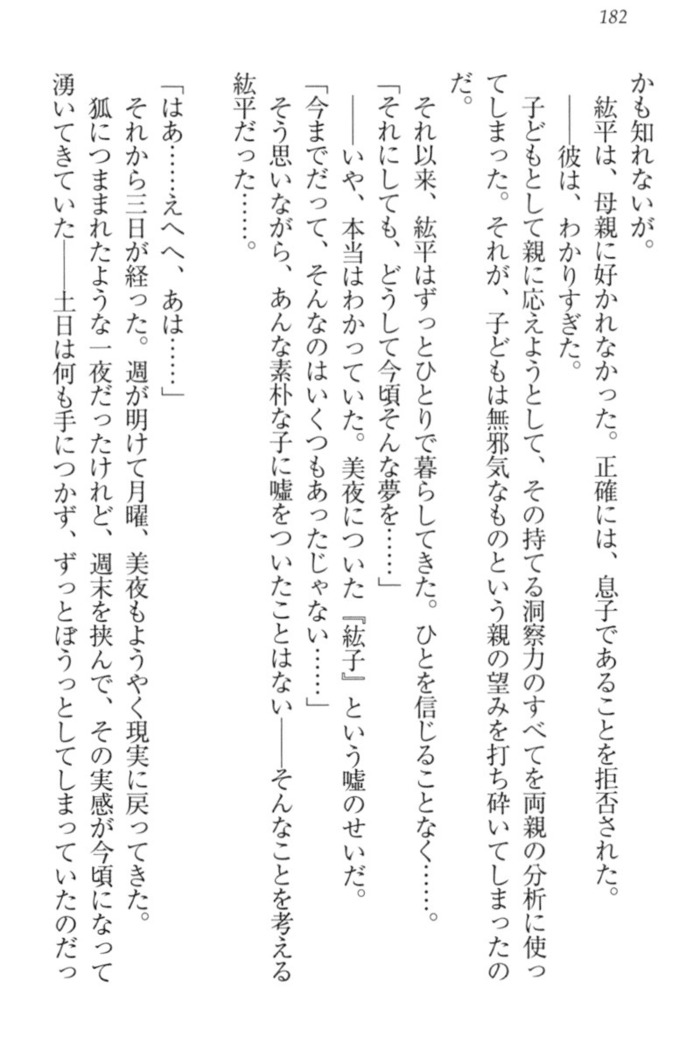 182
かも知れないが。
紘平は、母親に好かれなかった。正確には、息子であることを拒否された。
――彼は、わかりすぎた。
子どもとして親に応えようとして、その持てる洞察力のすべてを両親の分析に使っ
てしまった。それが、子どもは無邪気なものという親の望みを打ち砕いてしまったの
だ。
それ以来、紘平はずっとひとりで暮らしてきた。ひとを信じることなく……。
「それにしても、どうして今頃そんな夢を……」
――いや、本当はわかっていた。美夜についた『紘子』という嘘のせいだ。
「今までだって、そんなのはいくつもあったじゃない……」
そう思いながら、あんな素朴な子に嘘をついたことはない――そんなことを考える
紘平だった……。
「はあ……えへへ、あは……」
それから三日が経った。週が明けて月曜、美夜もようやく現実に戻ってきた。
狐につままれたような一夜だったけれど、週末を挟んで、その実感が今頃になって
湧いてきていた――土日は何も手につかず、ずっとぼうっとしてしまっていたのだっ